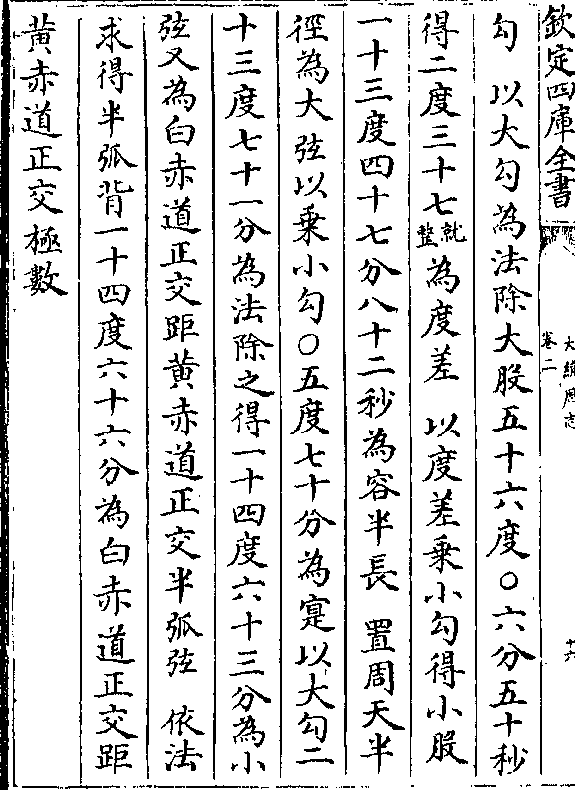 欽定四庫全書
卷二
十六
勾　以大勾為法除大股五十六度〇六分五十秒
得二度三十七就整為度差　以度差乗小勾得小股
一十三度四十七分八十二秒為容半長　置周天半
徑為大弦以乗小勾〇五度七十分為寔以大勾二
十三度七十一分為法除之得一十四度六十三分為小
弦又為白赤道正交距黄赤道正交半弧弦　依法
求得半弧背一十四度六十六分為白赤道正交距
黄赤道正交極數